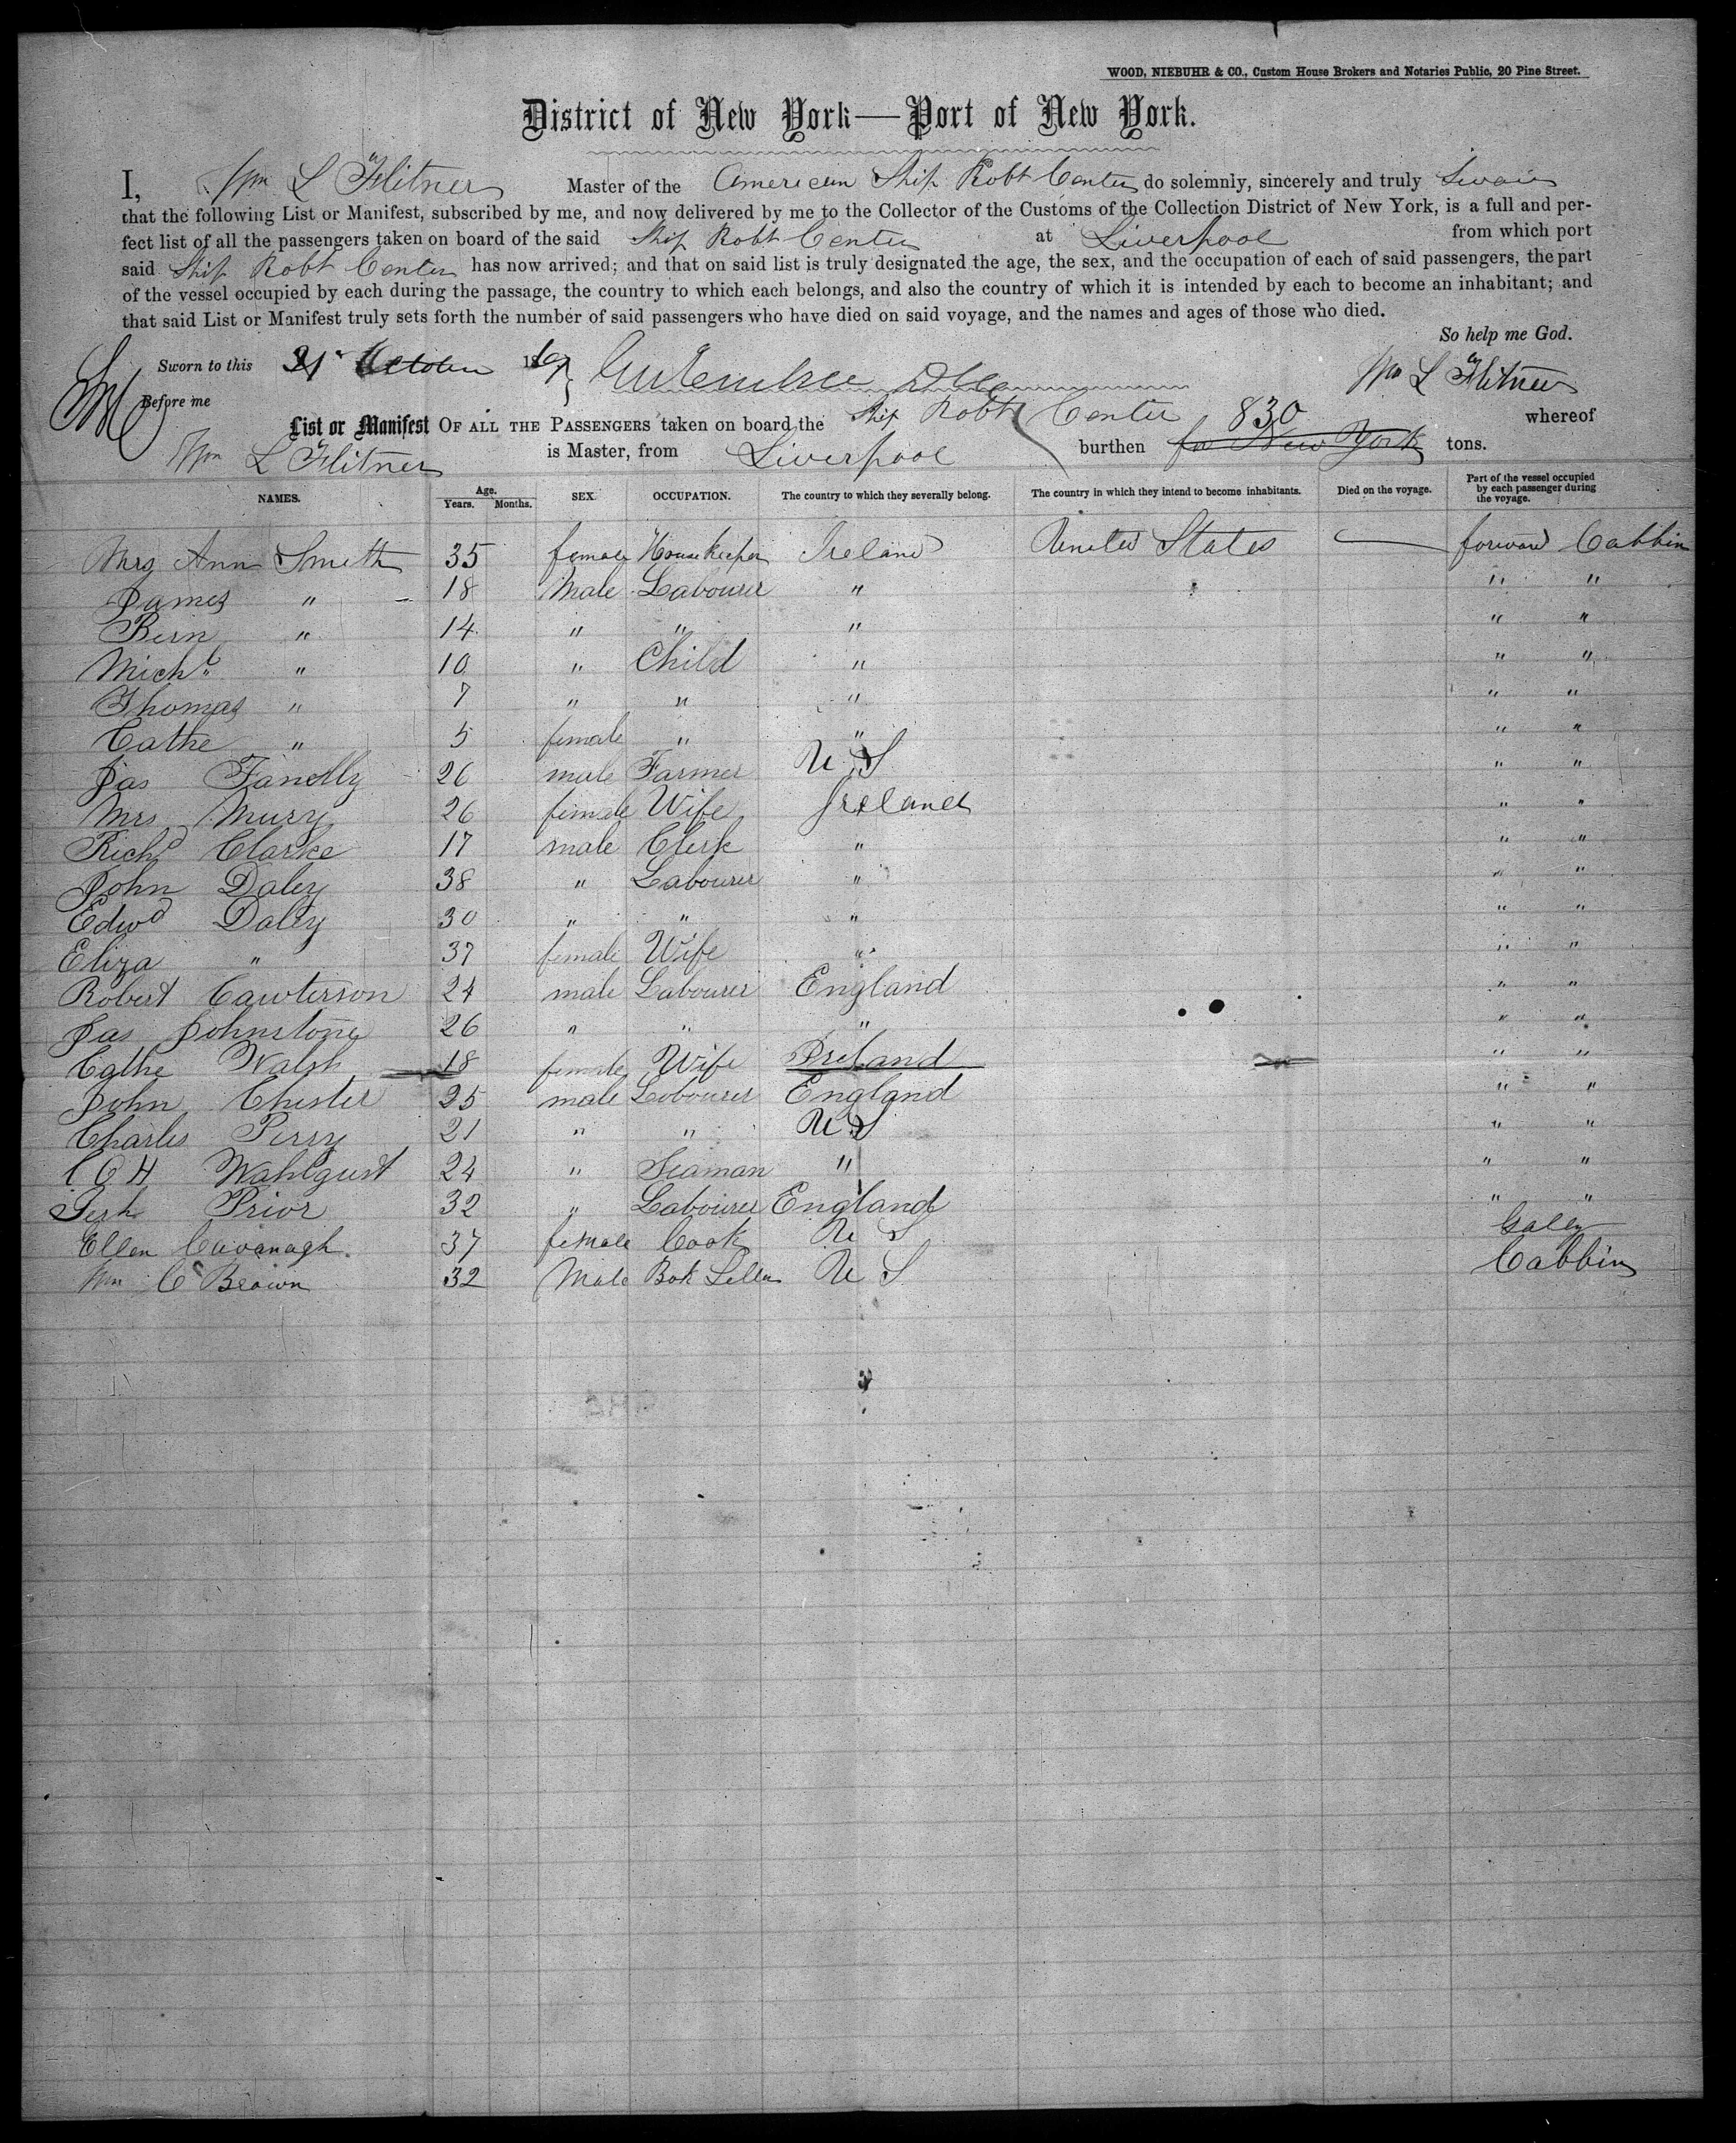 WOOD, NIEBUHR & CO., Custom House Brokers and Notaries Public, 20 Pine Street.
District of New York—Port of New York.
I, Wm L Flitner Master of the American Ship Robt Center do solemnly, sincerely and truly Swair
that the following List or Manifest, subscribed by me, and now delivered by me to the Collector of the Customs of the Collection District of New York, is a full and per-
fect list of all the passengers taken on board of the said Ship Robt Center at Liverpool from which port
said Ship Robt Center has now arrived; and that on said list is truly designated the age, the sex, and the occupation of each of said passengers, the part
of the vessel occupied by each during the passage, the country to which each belongs, and also the country of which it is intended by each to become an inhabitant; and
that said List or Manifest truly sets forth the number of said passengers who have died on said voyage, and the names and ages of those who died.
So help me God.
Sworn to this 21 October 1867 Wm L Flitner
Before me
List or Manifest OF ALL THE PASSENGERS taken on board the Ship Robt Center 830 whereof
Wm L Flitner is Master, from Liverpool burthen for New York tons.
NAMES. Age. Years. Months. SEX. OCCUPATION. The country to which they severally belong. The country in which they intend to become inhabitants. Died on the voyage. Part of the vessel occupied by each passenger during the voyage.
Mrs Ann Smith 35 female House Keeper Ireland United States — forward Cabbin
James " 18 Male Labourer " " "
Bern " 14 " " " " "
Michl " 10 " Child " " "
Thomas " 7 " " " " "
Cathe " 5 female " " " "
Jas Fanelly 26 male Farmer U S " "
Mrs Mury 26 female Wife Ireland " "
Richd Clarke 17 male Clerk " " "
John Daley 38 " Labourer " " "
Edwd Daley 30 " " " " "
Eliza " 37 female Wife " " "
Robert Cawterson 24 male Labourer England " "
Jas Johnstone 26 " " " " "
Cathe Walsh 18 female Wife Ireland " "
John Chester 25 male Labourer England " "
Charles Perry 21 " " U S " "
C O H Wahlqust 24 " Seaman " " "
Prior 32 " Labourer England " "
Ellen Cavanagh. 37 female Cook U S Galey
Wm C Brown 32 Male Bok Seller U S Cabbin